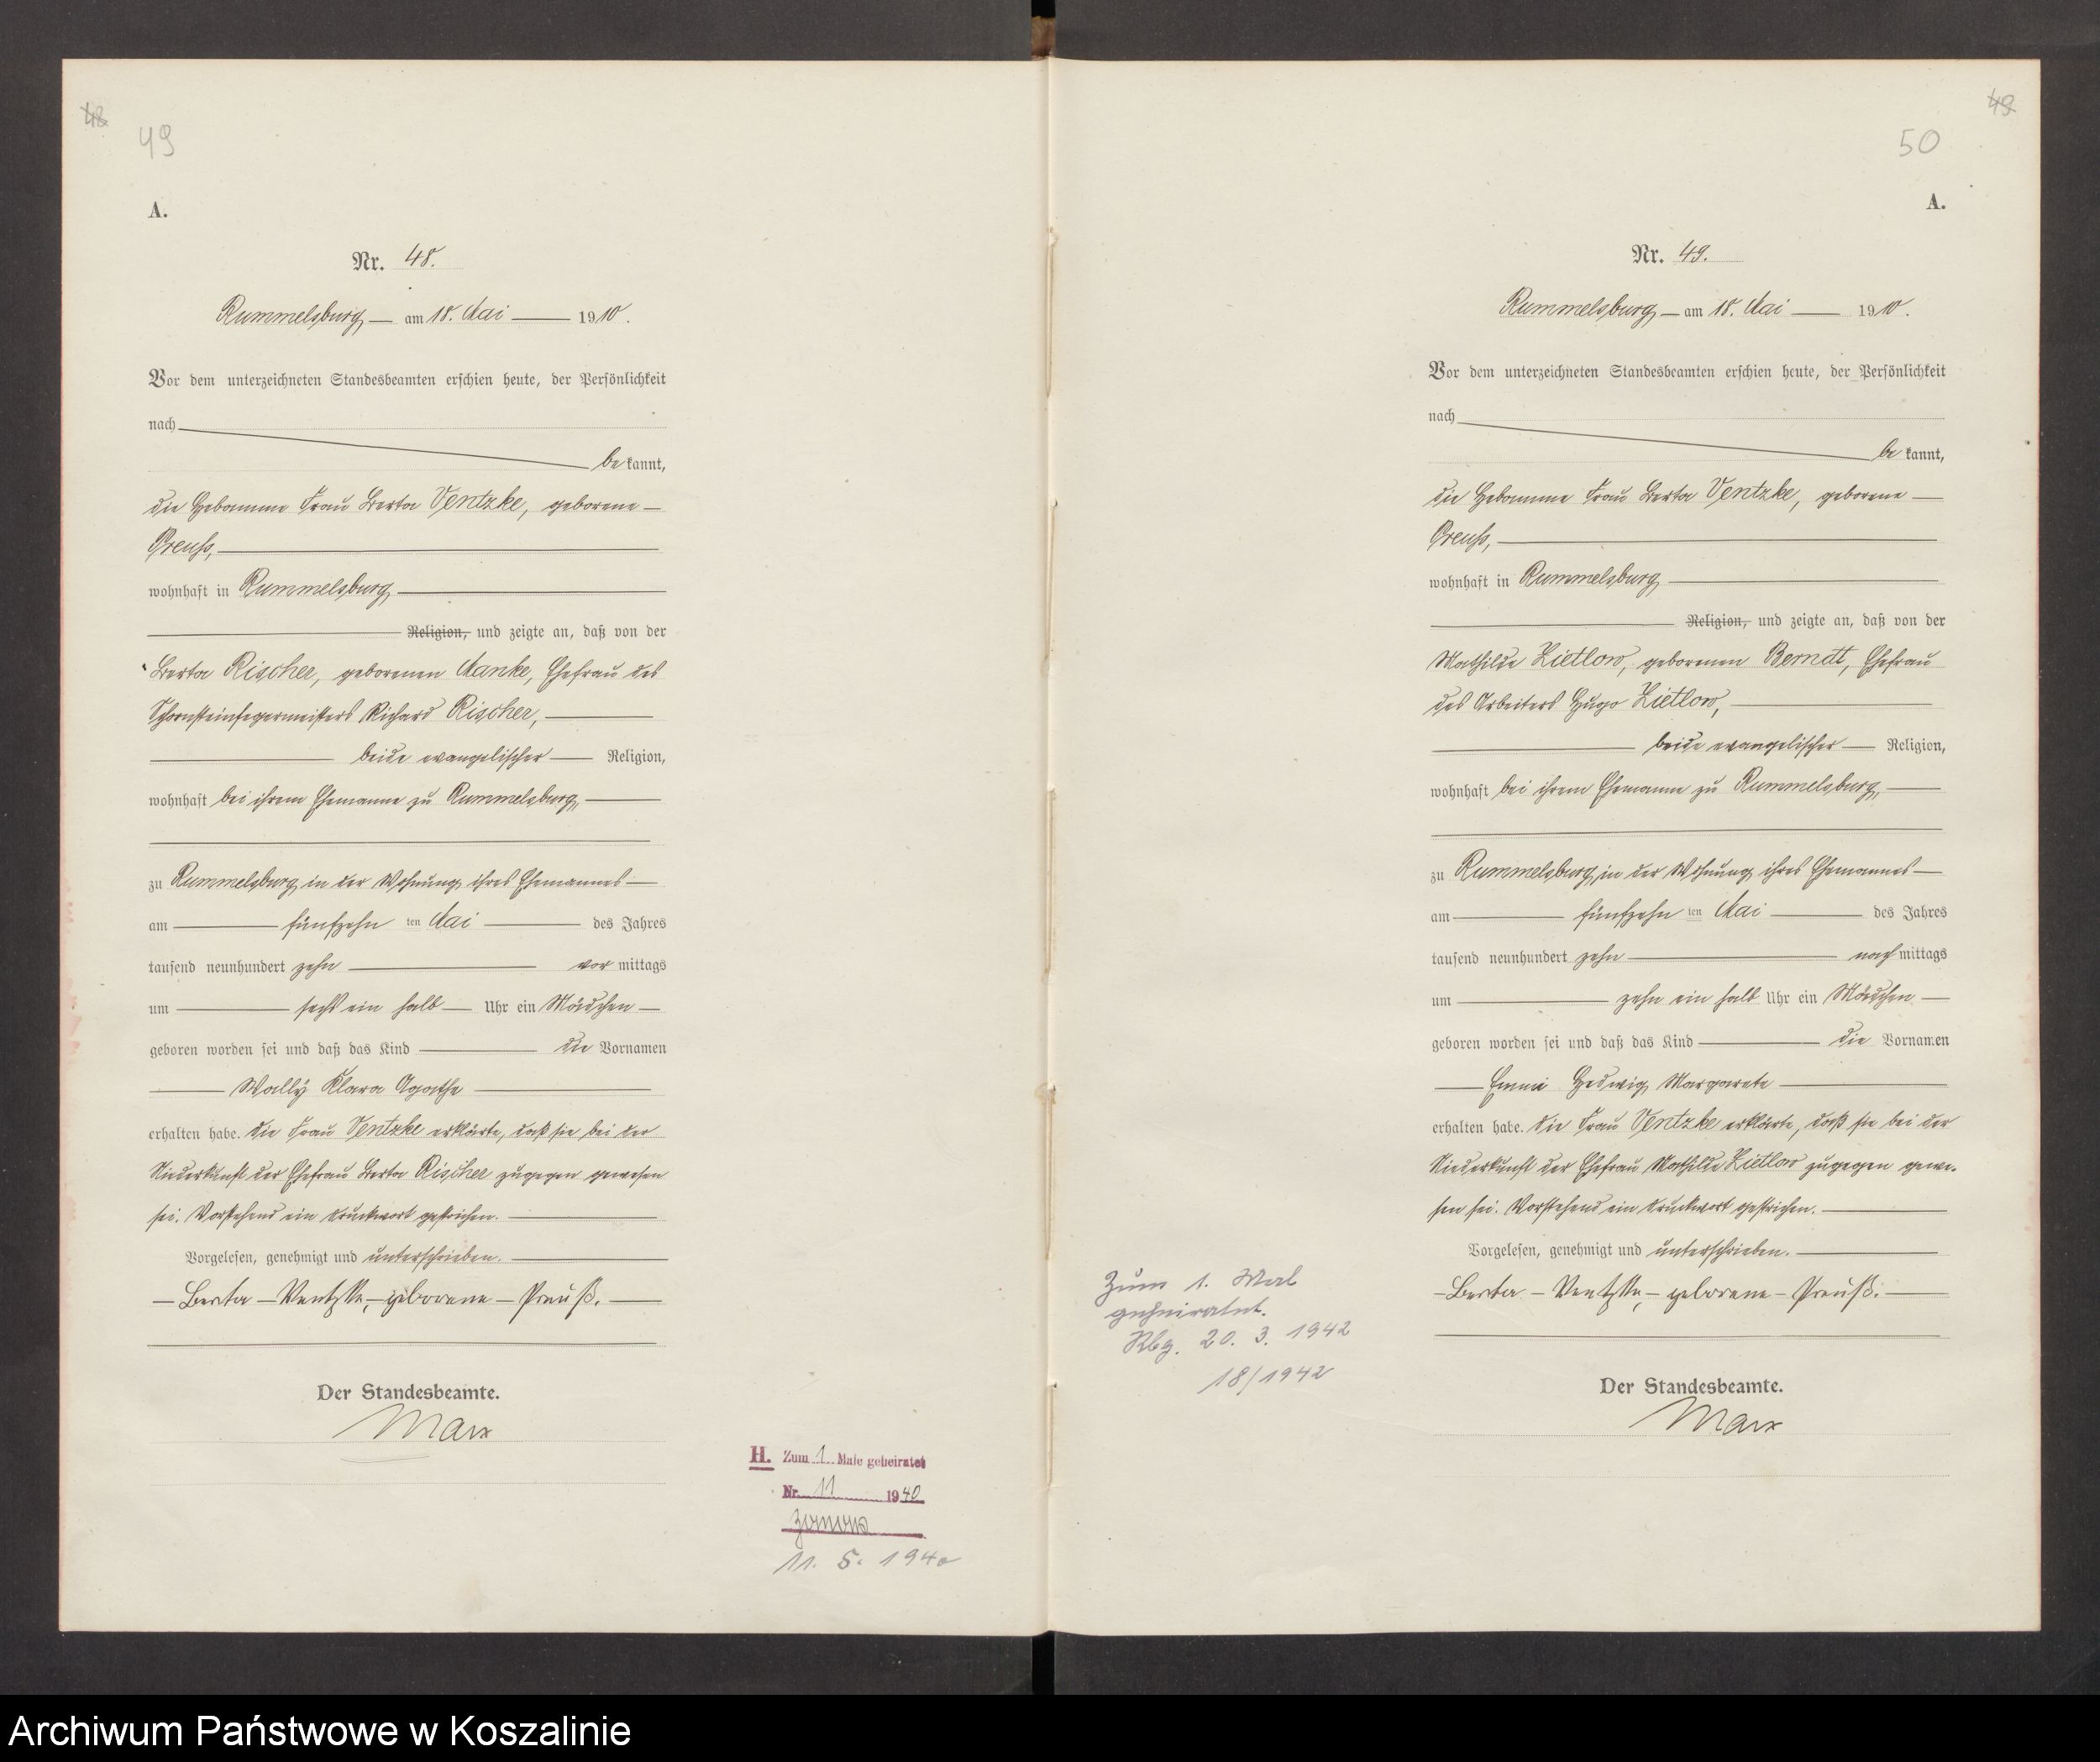 48
49
A.
Nr. 48.
Rummelsburg am 18. Mai 1910.
Vor dem unterzeichneten Standesbeamten erschien heute, der Persönlichkeit
nach
bekannt,
die Hebamme Frau Berta Ventzke, geborene
Preuß,
wohnhaft in Rummelsburg
Religion, und zeigte an, daß von der
Berta Rischer, geborenen Manke, Ehefrau des
Schornsteinfegermeisters Richard Rischer,
beide evangelischer Religion,
wohnhaft bei ihrem Ehemanne zu Rummelsburg,
zu Rummelsburg in der Wohnung ihres Ehemannes
am fünfzehnten Mai des Jahres
tausend neunhundert zehn vormittags
um sechs ein halb Uhr ein Mädchen
geboren worden sei und daß das Kind die Vornamen
Wally Klara Agathe
erhalten habe. Die Frau Ventzke erklärte, daß sie bei der
Niederkunft der Ehefrau Berta Rischer zugegen gewesen
sei. Vorstehend ein Druckwort gestrichen.
Vorgelesen, genehmigt und unterschrieben.
Berta Ventzke, geborene Preuß.
Der Standesbeamte.
Marx
H. Zum 1. Male geheiratet
Nr. 11 1940
Zanow
11. 5. 1940
49
50
A.
Nr. 49.
Rummelsburg am 18. Mai 1910.
Vor dem unterzeichneten Standesbeamten erschien heute, der Persönlichkeit
nach
bekannt,
die Hebamme Frau Berta Ventzke, geborene
Preuß,
wohnhaft in Rummelsburg
Religion, und zeigte an, daß von der
Mathilde Zietlow, geborenen Berndt, Ehefrau
des Arbeiters Hugo Zietlow,
beide evangelischer Religion,
wohnhaft bei ihrem Ehemanne zu Rummelsburg,
zu Rummelsburg, in der Wohnung ihres Ehemannes
am fünfzehnten Mai des Jahres
tausend neunhundert zehn nachmittags
um zehn ein halb Uhr ein Mädchen
geboren worden sei und daß das Kind die Vornamen
Emmi Hedwig Margarete
erhalten habe. Die Frau Ventzke erklärte, daß sie bei der
Niederkunft der Ehefrau Mathilde Zietlow zugegen gewe-
sen sei. Vorstehend ein Druckwort gestrichen.
Vorgelesen, genehmigt und unterschrieben.
Berta Ventzke, geborene Preuß.
Der Standesbeamte.
Marx
Zum 1. Mal
geheiratet.
Rbg. 20. 3. 1942
18/1942
Archiwum Państwowe w Koszalinie